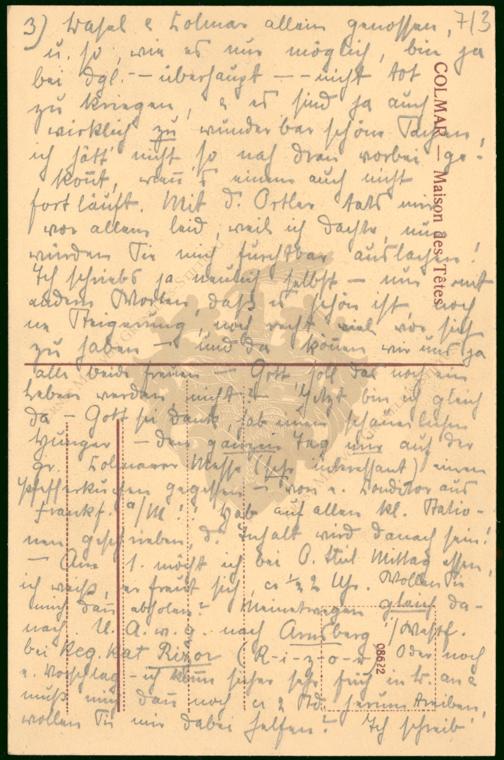 3) Basel & Colmar allein genossen, 7/3
u. so, wie es nur möglich, bin ja
bei dgl. – überhaupt – – nicht tot
zu kriegen, & es sind ja auch
wirklich zu wunderbar schöne Sachen,
ich hätt' nicht so nah dran vorbei ge-
konnt, wenn's einem auch nicht
fortläuft. Mit d. Ortler tats mir
vor allem leid, weil ich dachte, nun
würden Sie mich furchtbar auslachen!
Ich schriebs ja neulich selbst – nur mit
andern Worten, daß es schön ist, noch
ne Steigerung, noch recht viel vor sich
zu haben – und da können wir uns ja
alle beide freuen – Gott soll das noch ein
Leben werden, nicht? – Jetzt bin ich gleich
da – Gott sei Dank, hab einen schauerlichen
Hunger – den ganzen Tag nur auf der
gr. Colmarer Messe (sehr interessant) einen
Pfefferkuchen gegessen – von e. Conditor aus
Frankf. a/M! Hab auf allen kl. Statio-
nen geschrieben, d. Inhalt wird danach sein!
– Am 1. möcht ich bei O. Mittag essen,
ich weiß, er freut sich, ca ½ 2 Uhr. Wollen Sie
mich dann abholen? Meinetwegen gleich da-
nach U. A. w. g. nach Arnsberg /Westf.
bei Reg. Rat Rizor (R-i-z-o-r) Oder noch
e. Vorschlag – ich komm sicher sehr früh in an &
muß mich dann noch ca 2 Std. herumtreiben,
wollen Sie mir dabei helfen? Ich schreib'
COLMAR — Maison des Têtes
08672